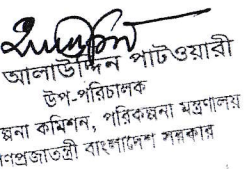 আলাউদ্দিন পাটওয়ারী
উপ-পরিচালক
ল্পনা কমিশন, পরিকল্পনা মন্ত্রণালয়
ণপ্রজাতন্ত্রী বাংলাদেশ সরকার